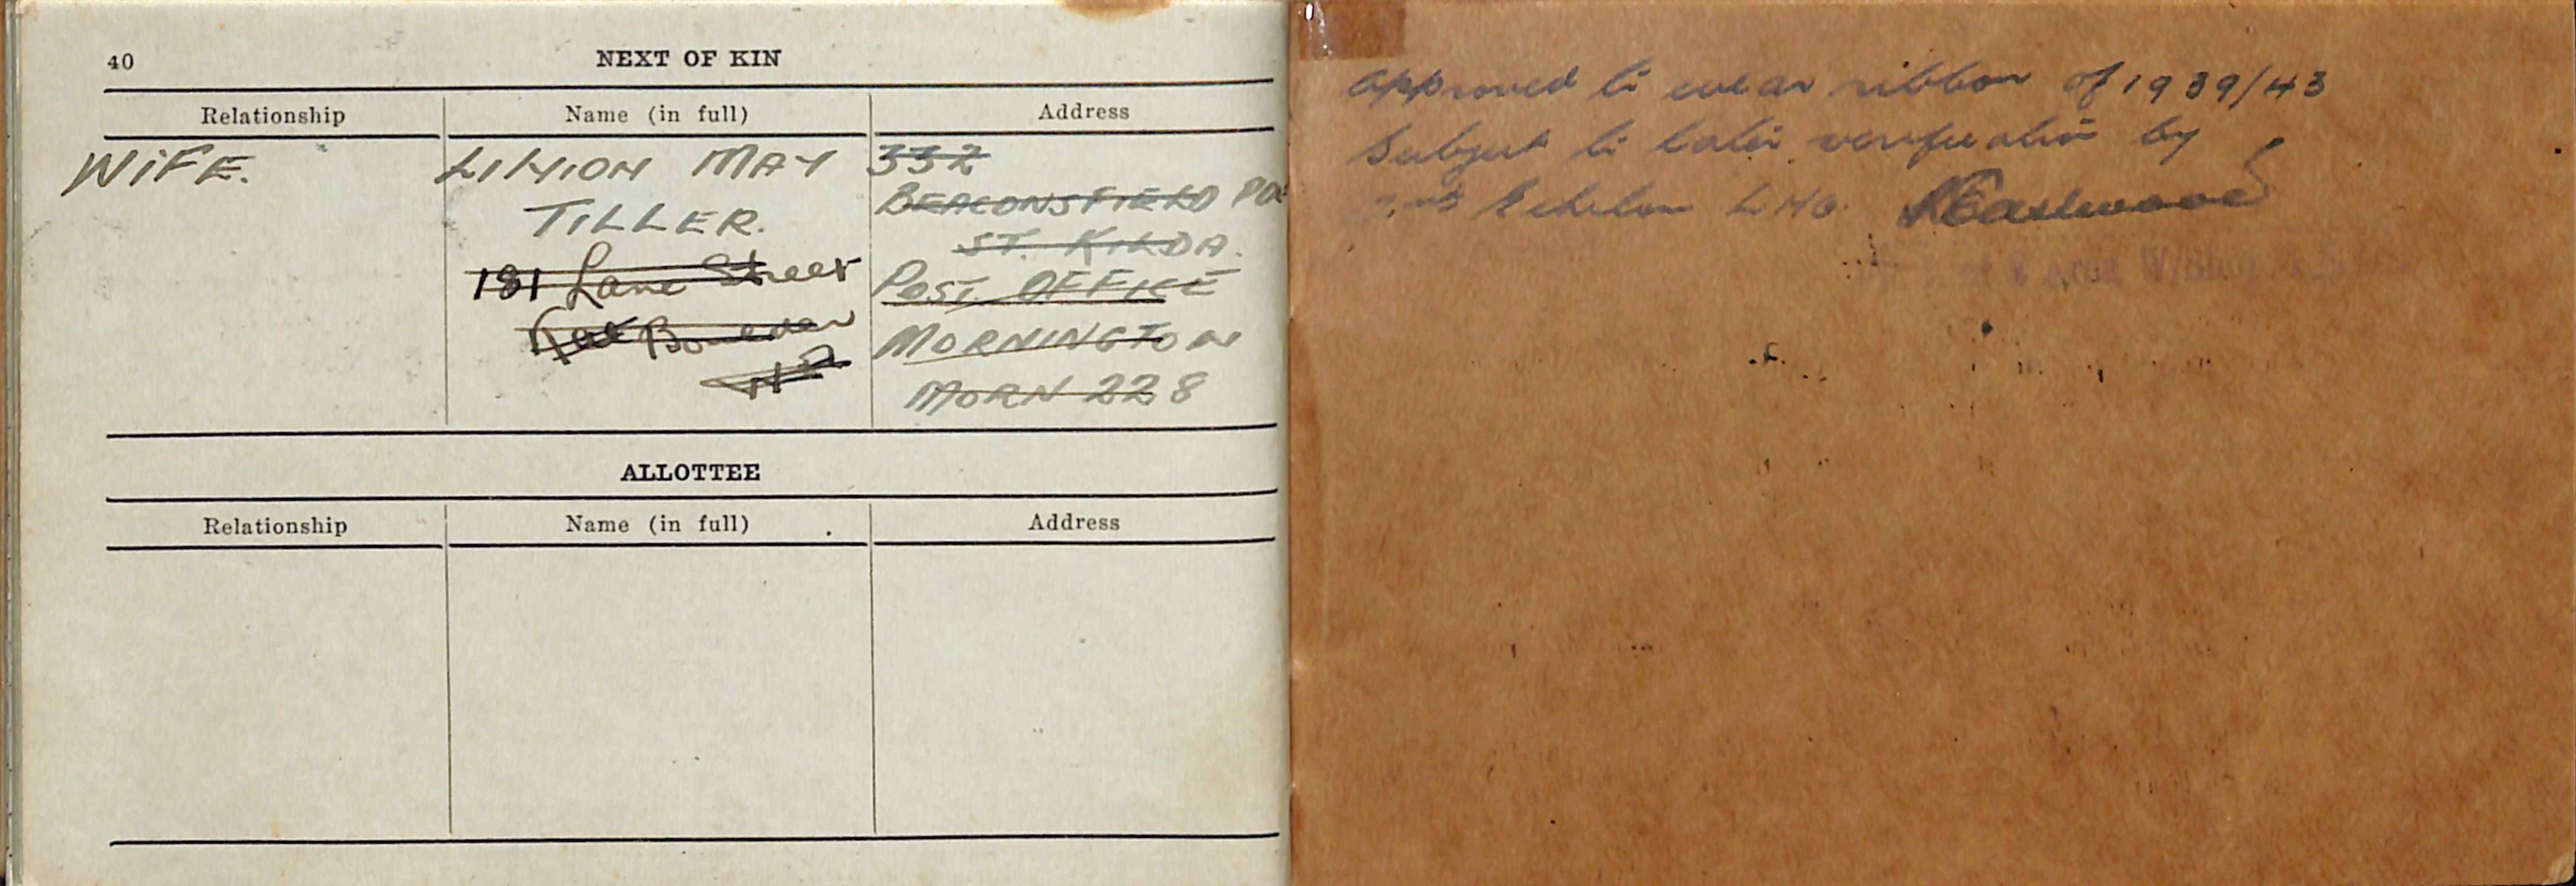 40 NEXT OF KIN
Relationship Name (in full) Address
WIFE. LILLION MAY 332
TILLER. BEACONSFIELD PDE
ST. KILDA.
181 Lane Street POST OFFICE
Kal Boulder MORNINGTON
WA MORN 228
ALLOTTEE
Relationship Name (in full) Address
approved to wear ribbon of 1939/43
Subject to later verification by
2nd Echelon LHQ. Eastwood